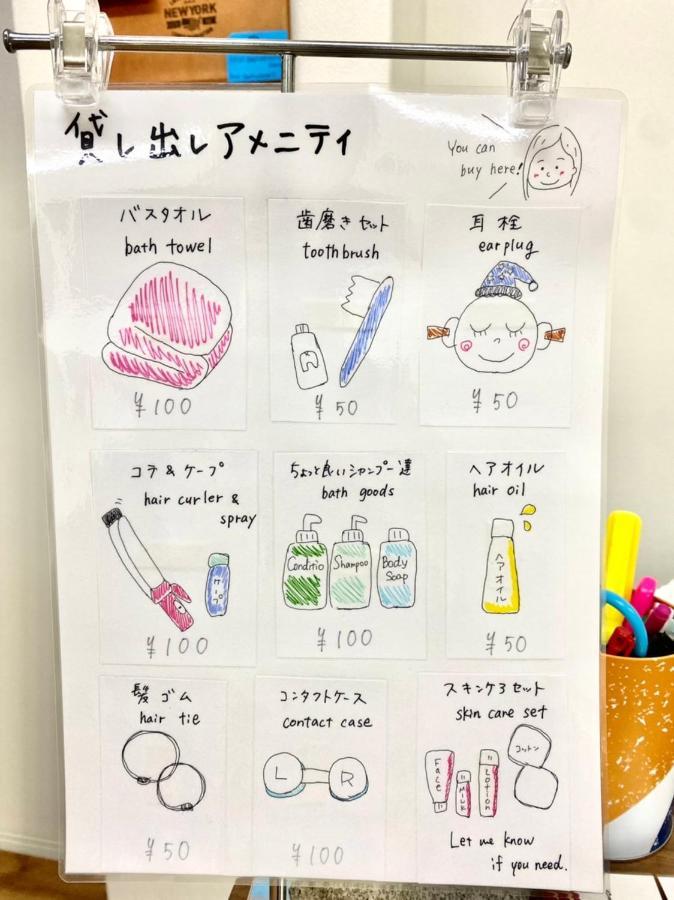 NEW YORK
貸し出しアメニティ
You can
buy here!
バスタオル
bath towel
¥100
歯磨きセット
toothbrush
¥50
耳栓
earplug
¥50
コテ&ケープ
hair curler &
spray
ケープ
¥100
ちょっと良いシャンプー達
bath goods
Conditio
Shampoo
Body
Soap
¥100
ヘアオイル
hair oil
ヘアオイル
¥50
髪ゴム
hair tie
¥50
コンタクトケース
contact case
L
R
¥100
スキンケアセット
skin care set
Face
Milk
Lotion
コットン
Let me know
if you need.